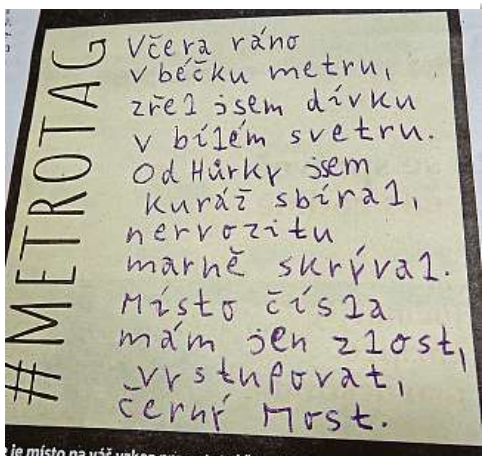 #METROTAG
Včera ráno
v béčku metru,
zřel jsem dívku
v bílém svetru.
Od Hůrky jsem
kuráž sbíral,
nervozitu
marně skrýval.
Místo čísla
mám jen zlost,
vystupovat,
černý Most.
je místo na váš vzkaz